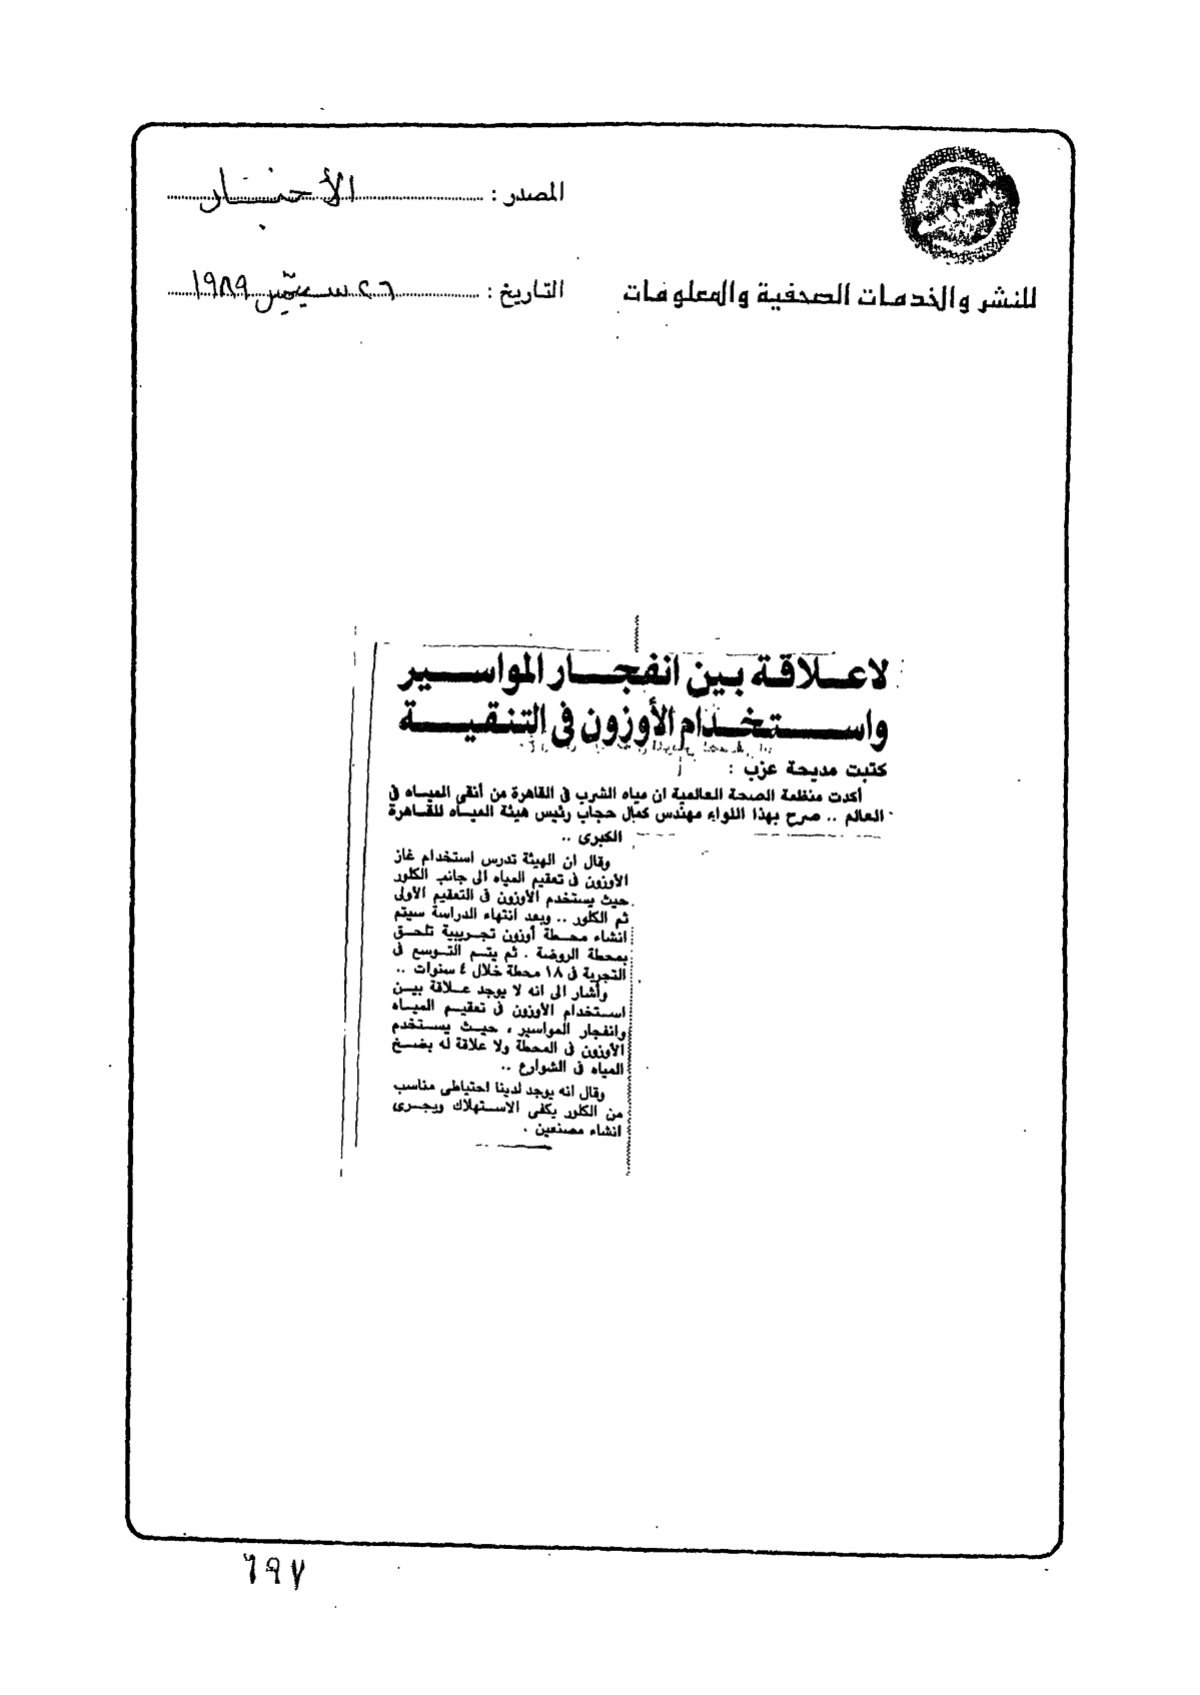 المصدر : الأخبار
للنشر والخدمات الصحفية والمعلومات
التاريخ : ٢٦ سبتمبر ١٩٨٩
لاعلاقة بين انفجار المواسير
واستخدام الأوزون فى التنقية
كتبت مديحة عزب :
أكدت منظمة الصحة العالمية ان مياه الشرب فى القاهرة من أنقى المياه فى
العالم .. صرح بهذا اللواء مهندس كمال حجاب رئيس هيئة المياه للقاهرة
الكبرى ..
وقال ان الهيئة تدرس استخدام غاز
الأوزون فى تعقيم المياه الى جانب الكلور
حيث يستخدم الأوزون فى التعقيم الأولى
ثم الكلور .. وبعد انتهاء الدراسة سيتم
انشاء محطة أوزون تجريبية تلحق
بمحطة الروضة . ثم يتم التوسع فى
التجربة فى ١٨ محطة خلال ٤ سنوات ..
وأشار الى انه لا يوجد علاقة بين
استخدام الأوزون فى تعقيم المياه
وانفجار المواسير ، حيث يستخدم
الأوزون فى المحطة ولا علاقة له بضخ
المياه فى الشوارع ..
وقال انه يوجد لدينا احتياطى مناسب
من الكلور يكفى الاستهلاك ويجرى
انشاء مصنعين .
٦٩٧